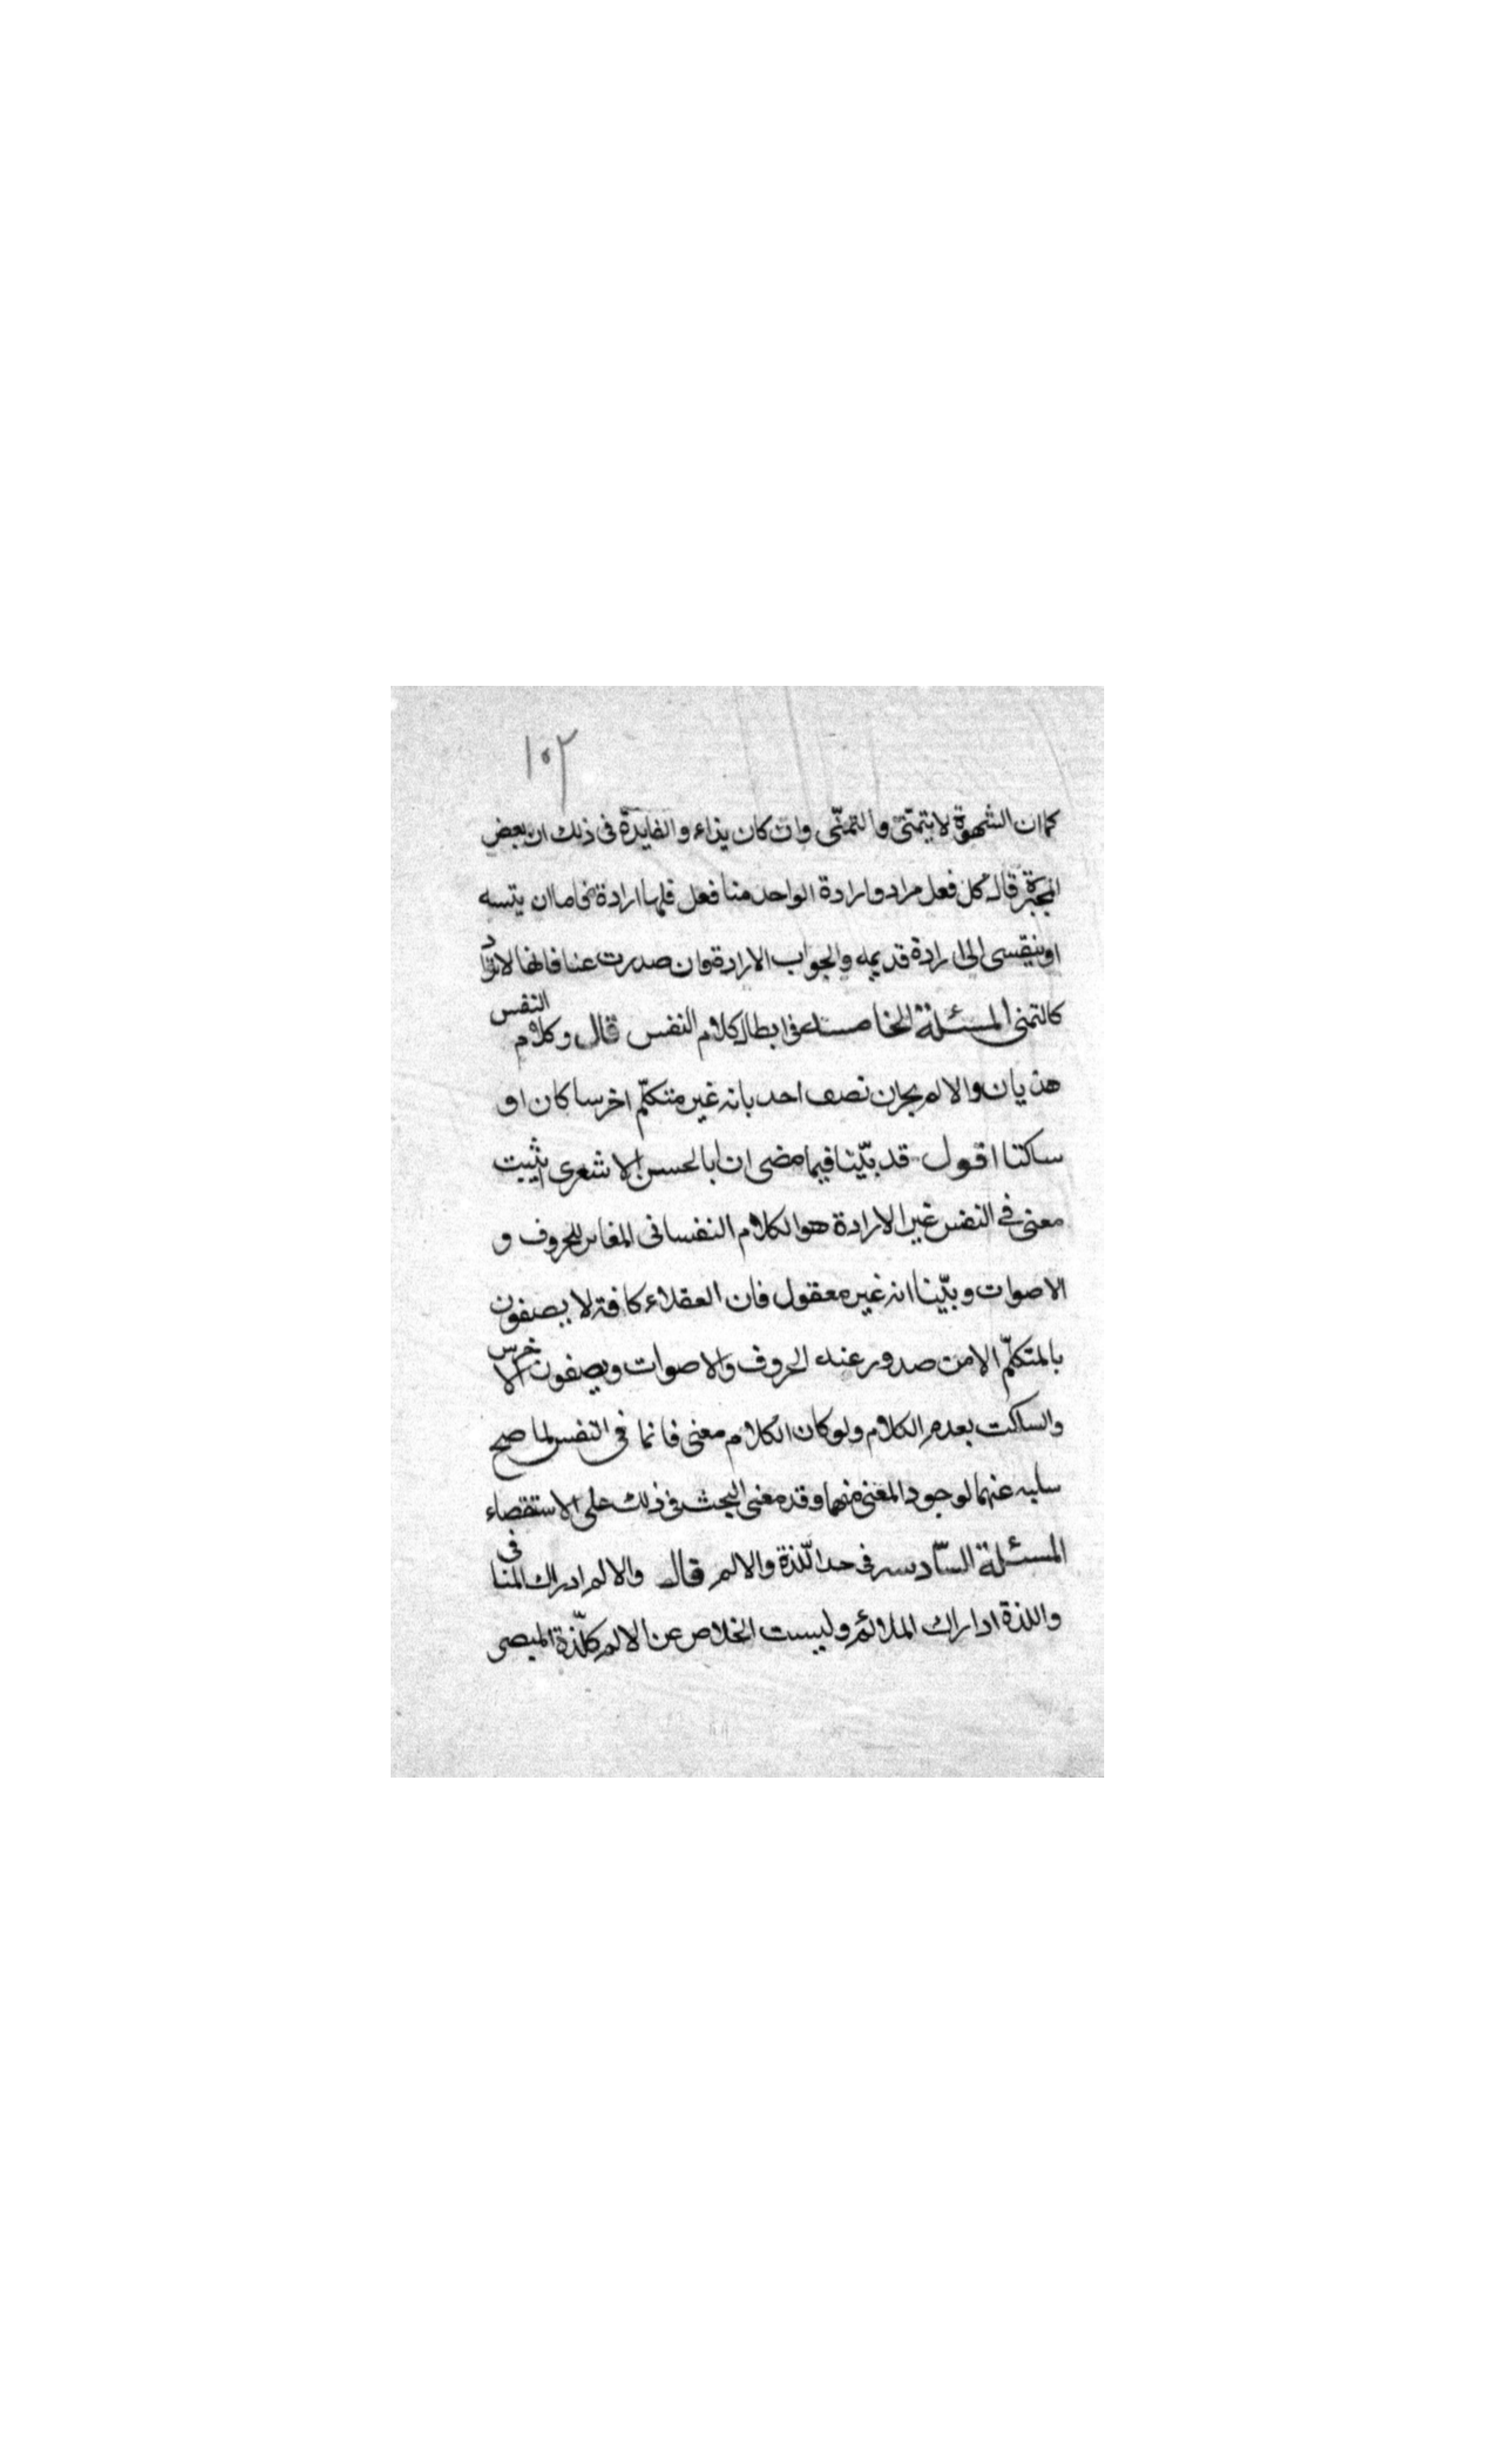 ١٠٢
كما ان الشهوة لا يتمنّى والتمنّى وان كان يذاء والفايدة فى ذلك ان بعض
المجبّرة قال كل فعل مراد وارادة الواحد منا فعل فلها ارادة فاما ان يتسه
او ينقسى الى ارادة قديمه والجواب الارادة وان صدرت عنا فانها لا تراد
كالتمنى المسئلة الخامسه فى ابطال كلام النفس قال وكلام النفس
هذيان والا لم يجزان نصف احد بانه غير متكلّم اخرسا كان او
ساكتا اقول قد بيّنا فيما مضى ان ابا الحسن الاشعرى اثبت
معنى فى النفس غير الارادة هو الكلام النفسانى المغاير للحروف و
الاصوات وبيّنا انه غير معقول فان العقلاء كافة لا يصفون
بالمتكلّم الا من صدور عنه الحروف والاصوات ويصفون الاخرس
والساكت بعدم الكلام ولو كان الكلام معنى قائما فى النفس لما صح
سلبه عنهما لوجود المعنى منهما وقد مغى البحث فى ذلك على الاستقصاء
المسئلة السّادسه فى حد اللّذة والالم قال والالم ادراك المنافى
واللذة اداراك الملائم وليست الخلاص عن الالم كلّذة المبصى